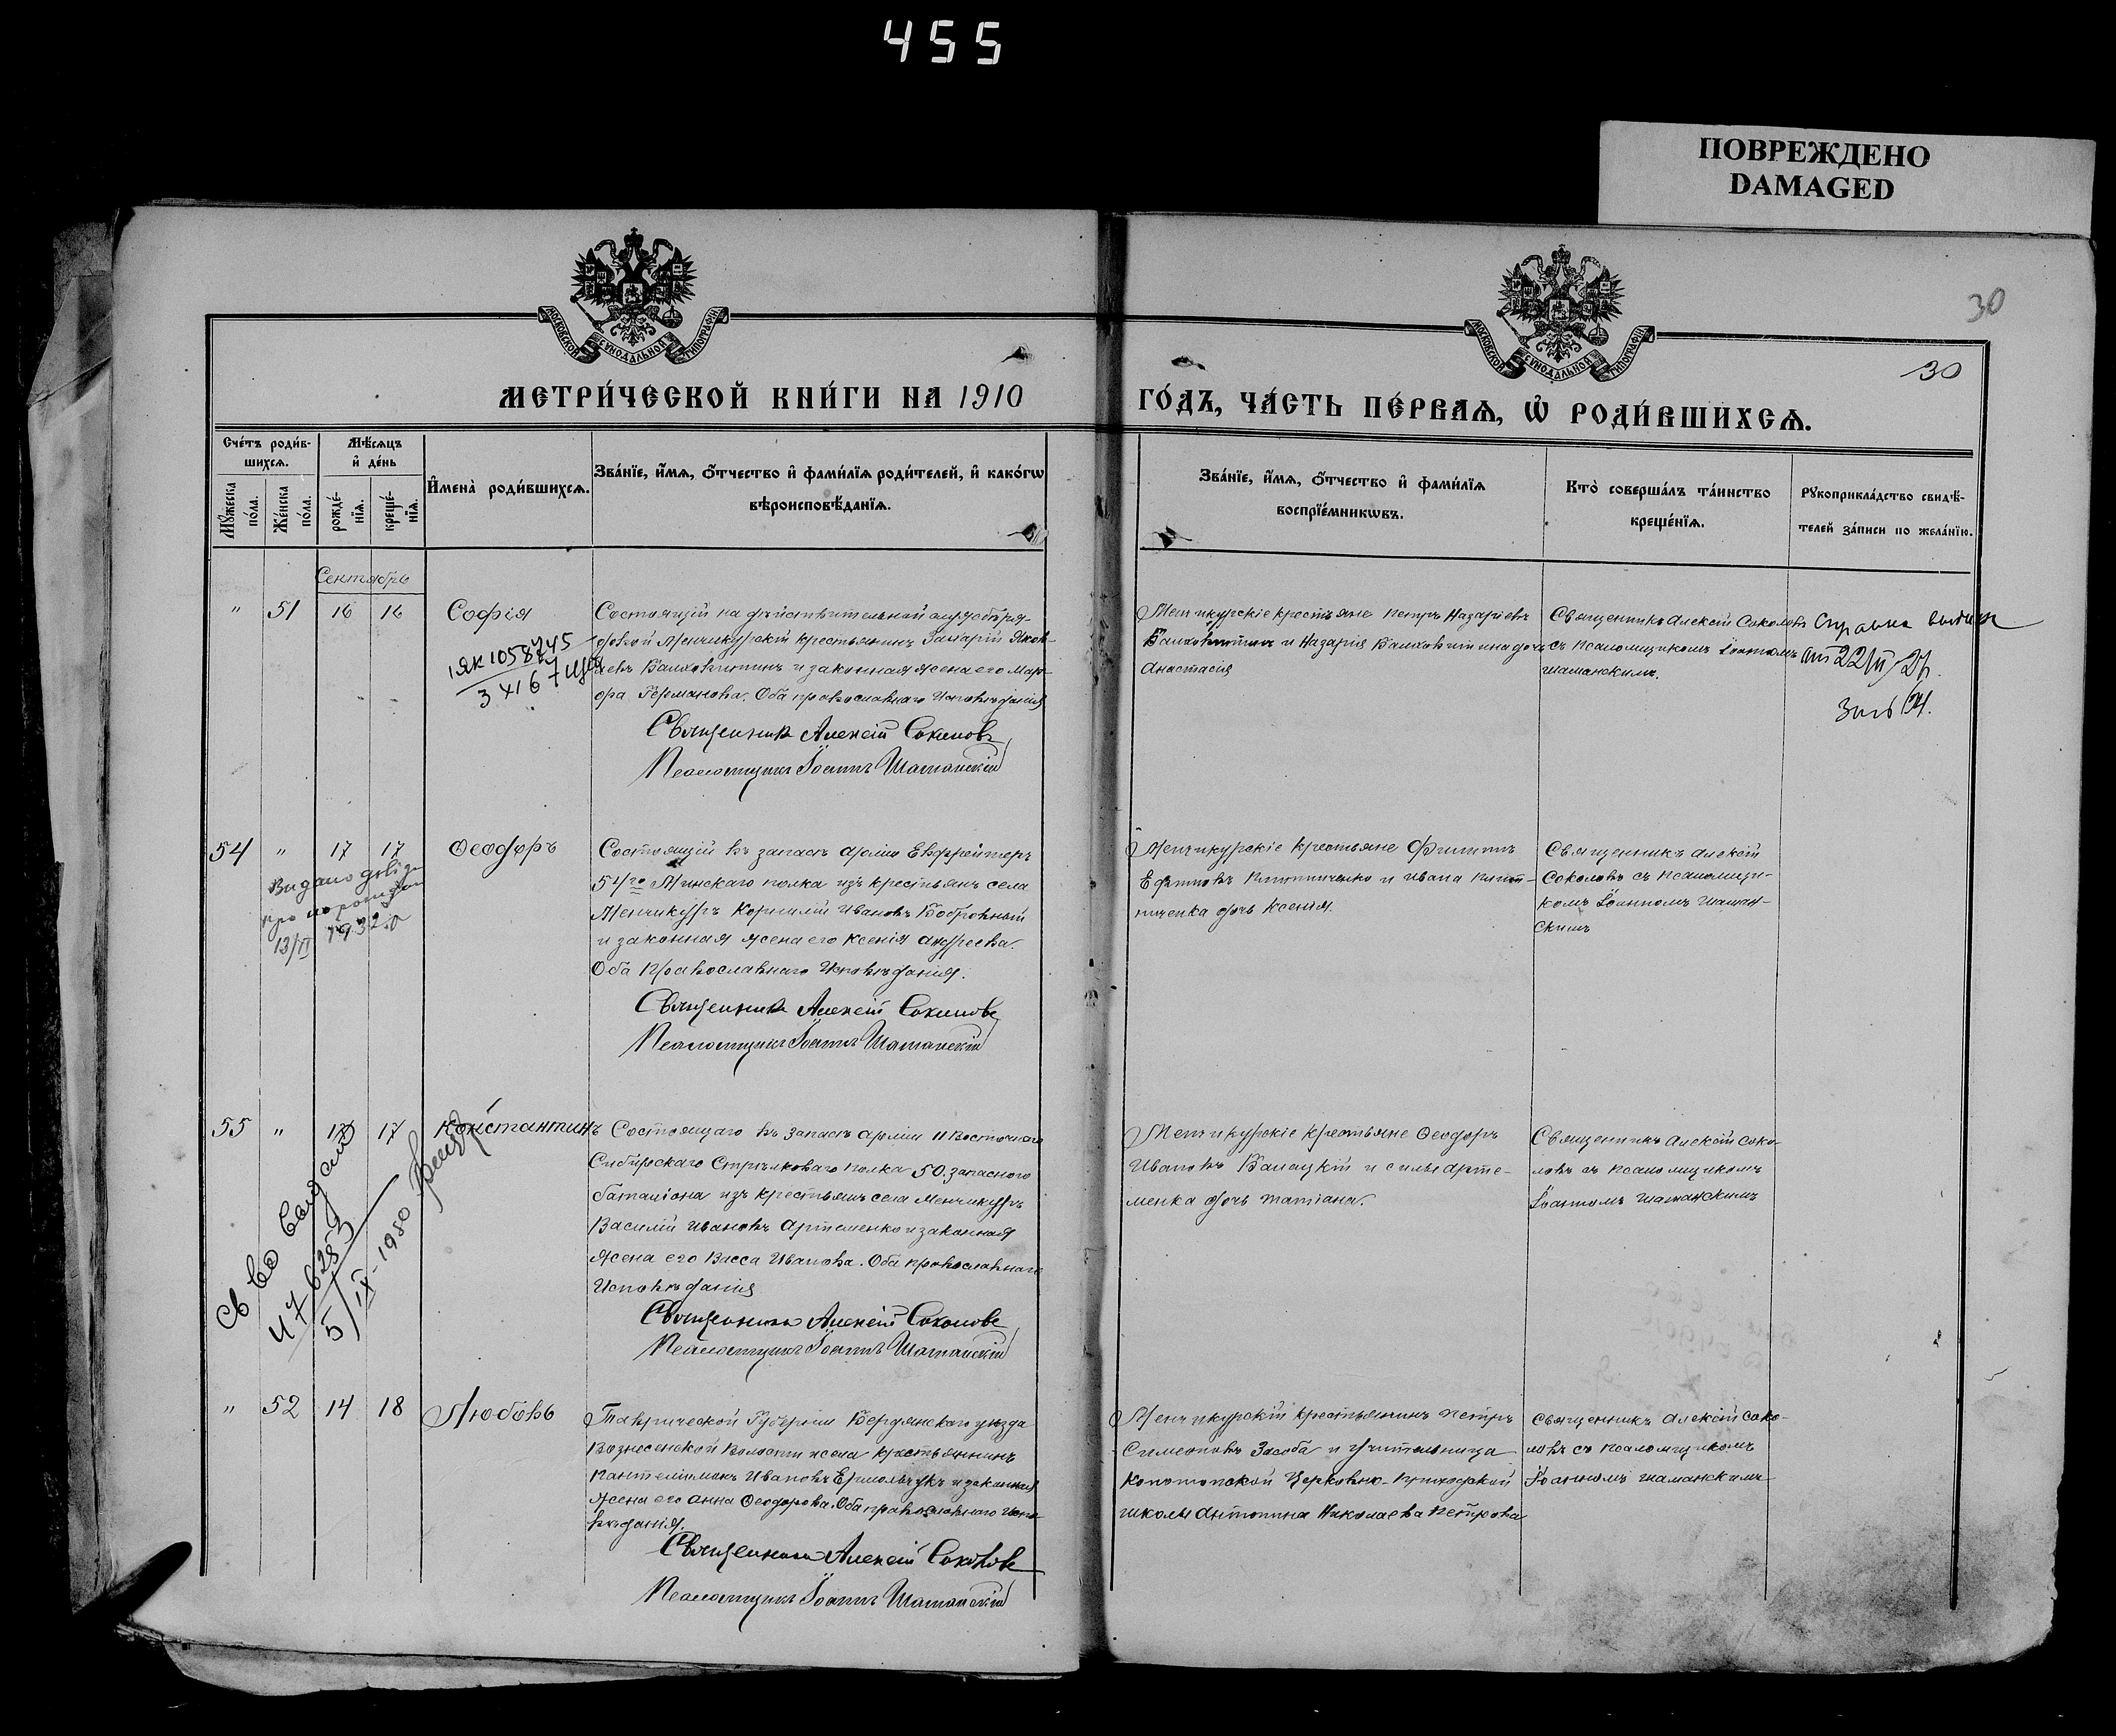 455
ПОВРЕЖДЕНО
DAMAGED
МОСКОВСКОЙ СУНОДАЛЬНОЙ ТИПОГРАФІИ
МОСКОВСКОЙ СУНОДАЛЬНОЙ ТИПОГРАФІИ
30
30
МЕТРИ́ЧЕСКОЙ КНИ́ГИ НА 1910
ГО́ДЪ, ЧА́СТЬ ПЕ́РВАѦ, Ѡ҆ РОДИ́ВШИХСѦ.
Сче́тъ роди́в-
шихсѧ.
Мѣ́сѧцъ
и҆ де́нь
Мꙋ́жеска
по́ла.
Же́нска
по́ла.
рожде́-
нїѧ.
креще́-
нїѧ.
И҆мена̀ роди́вшихсѧ.
Зва́нїе, и҆́мѧ, ѻ҆́тчество и҆ фами́лїѧ роди́телей, и҆ како́гѡ
вѣроисповѣ́данїѧ.
Зва́нїе, и҆́мѧ, ѻ҆́тчество и҆ фами́лїѧ
воспрїе́мникѡвъ.
Кто̀ соверша́лъ та́инство
креще́нїѧ.
Рꙋкоприкла́дство свидѣ́-
телей за́писи по жела́нїю.
Сентябрь
" 51 16 16 Софія
Состоящій на дѣйствительной
Менчикурскій крестьянинъ Захарій Яков-
левъ Валховитинъ и законная жена его Мар-
ѳра Германова. Оба православнаго Исповѣданія
Священникъ Алексій Соколовъ
Псаломщикъ Іоаннъ Шаманскій
1ЯК 1058745
3 XI 67
Менчикурскіе крестьяне Петръ Назаріевъ
Валховитинъ и Назарія Валховитина дочь
Анастасія
Священникъ Алексій Соколовъ
съ псаломщикомъ Іоанномъ
Шаманскимъ.
Справка
54 " 17 17 Ѳеодоръ
Видано
13/II 1932
Состоящій въ запасѣ арміи Ефрейторъ
54го Минскаго полка изъ крестьянъ села
Менчикуръ Корнилій Ивановъ Бобровный
и законная жена его Ксенія Андреева.
Оба Православнаго Исповѣданія.
Священникъ Алексій Соколовъ
Псаломщикъ Іоаннъ Шаманскій
Менчикурскіе крестьяне Филиппъ
Ефимовъ и Ивана
дочь Ксенія.
Священникъ Алексій
Соколовъ съ псаломщи-
комъ Іоанномъ Шаман-
скимъ
55 " 17 17 Константинъ
5/IX-1950
Состоящаго въ запасѣ арміи 11 Восточнаго
Сибирскаго Стрѣлковаго полка 50. запаснаго
баталіона изъ крестьянъ села Менчикуръ
Василій Ивановъ Артеменко и законная
жена его Васса Иванова. Оба православнаго
Исповѣданія
Священникъ Алексій Соколовъ
Псаломщикъ Іоаннъ Шаманскій
Менчикурскіе крестьяне Ѳеодоръ
Ивановъ и Силы Арте-
менка дочь Татіана.
Священникъ Алексій Соко-
ловъ съ псаломщикомъ
Іоанномъ Шаманскимъ
" 52 14 18 Любовь
Таврической Губерніи Бердянскаго уѣзда
Вознесенской Волости и села крестьянинъ
Пантелимонъ Ивановъ Ермольчукъ и законная
жена его Анна Ѳеодорова. Оба православнаго Испо-
вѣданія.
Священникъ Алексій Соколовъ
Псаломщикъ Іоаннъ Шаманскій
Менчикурскій крестьянинъ Петръ
Симеоновъ Засоба и Учительница
Конотопской Церковно-приходской
школы Антонина Николаева Петрова
Священникъ Алексій Соко-
ловъ съ псаломщикомъ
Іоанномъ Шаманскимъ